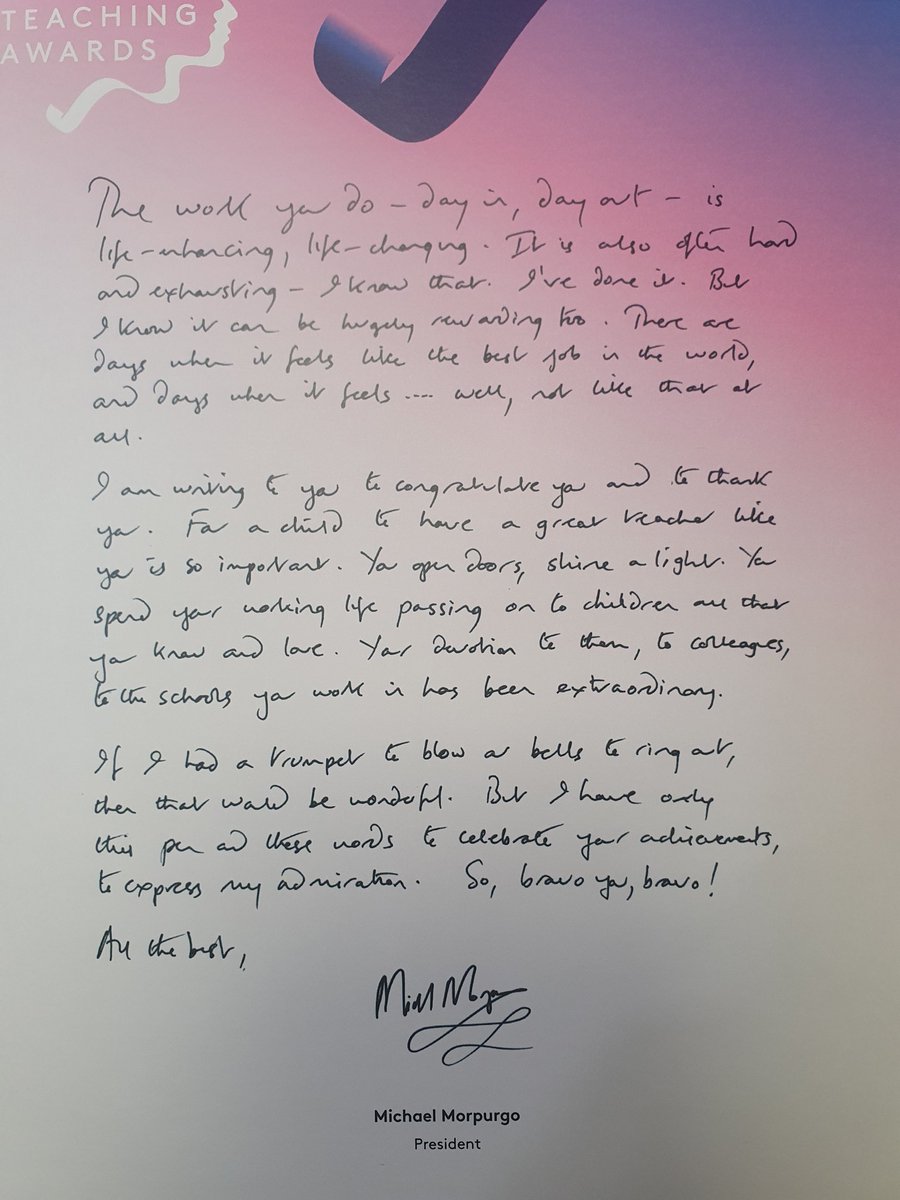 TEACHING
AWARDS
The work you do – day in, day out – is
life-enhancing, life-changing. It is also often hard
and exhausting – I know that. I've done it. But
I know it can be hugely rewarding too. There are
days when it feels like the best job in the world,
and days when it feels .... well, not like that at
all.
I am writing to you to congratulate you and to thank
you. For a child to have a great teacher like
you is so important. You open doors, shine a light. You
spend your working life passing on to children all that
you know and love. Your devotion to them, to colleagues,
to the schools you work in has been extraordinary.
If I had a trumpet to blow or bells to ring out,
then that would be wonderful. But I have only
this pen and these words to celebrate your achievements,
to express my admiration. So, bravo you, bravo!
All the best,
Michael Morpurgo
Michael Morpurgo
President